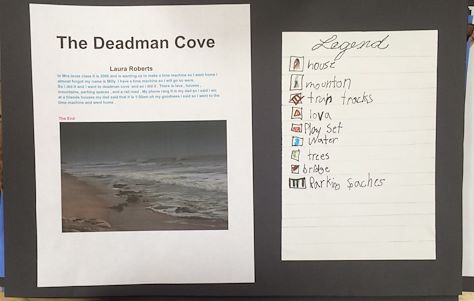 The Deadman Cove
Laura Roberts
In Mrs latas class it is 3000 and is wanting us to make a time machine so I went home I
almost forgot my name is Milly. I have a time machine so I will go so were.
So I did it and I went to deadman cove and so I did it. There is lava, houses,
mountains, parking spaces, and a rail road. My phone rang it is my dad so I said I am
at a friends houses my dad said that it is 1:00am oh my goodness I said so I went to the
time machine and went home.
The End
Legend
house
mounton
train tracks
lova
Play set
water
trees
bridge
Parking Spaches